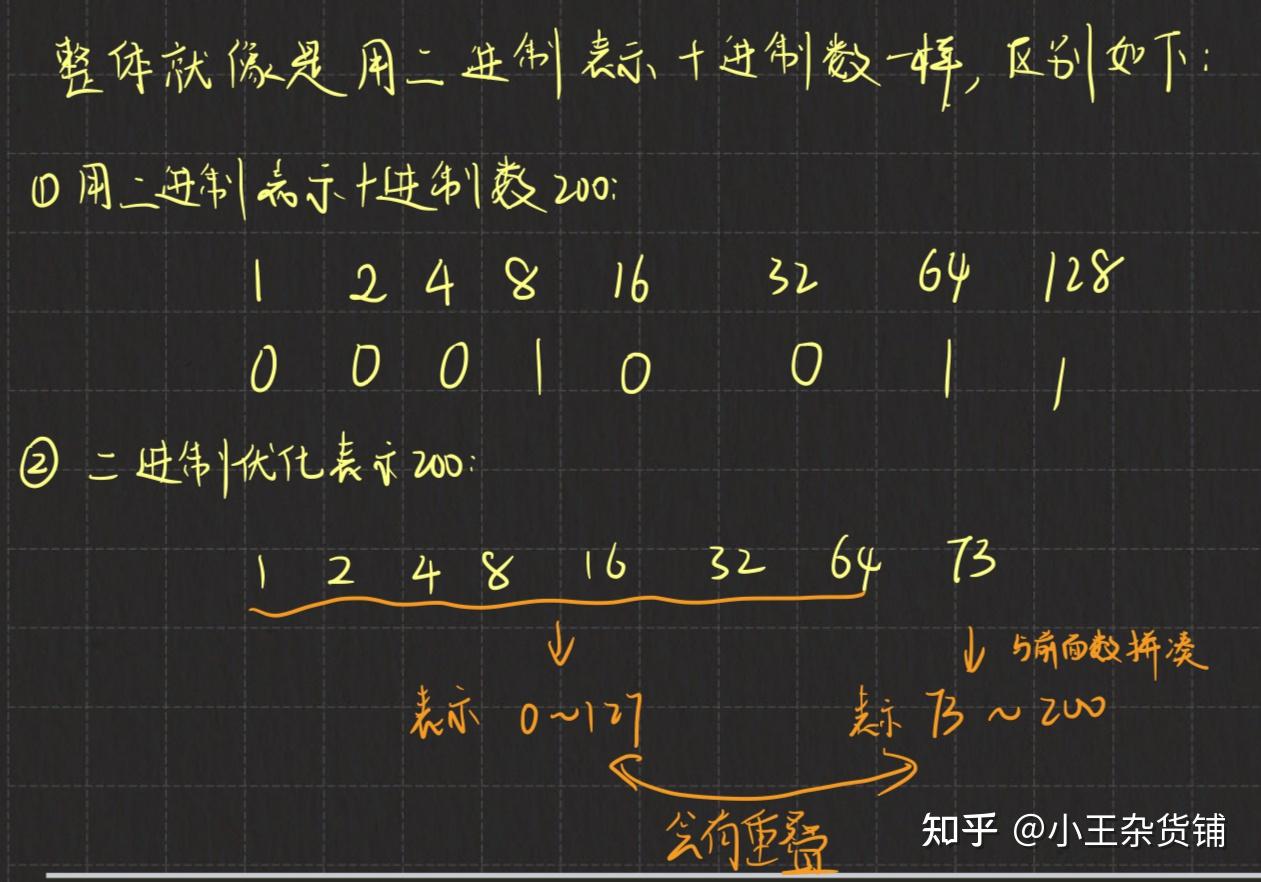 整体就像是用二进制表示十进制数一样，区别如下：
① 用二进制表示十进制数200：
1 2 4 8 16 32 64 128
0 0 0 1 0 0 1 1
② 二进制优化表示200：
1 2 4 8 16 32 64 73
与前面数拼凑
表示 0～127 表示 73～200
会有重叠
知乎 @小王杂货铺